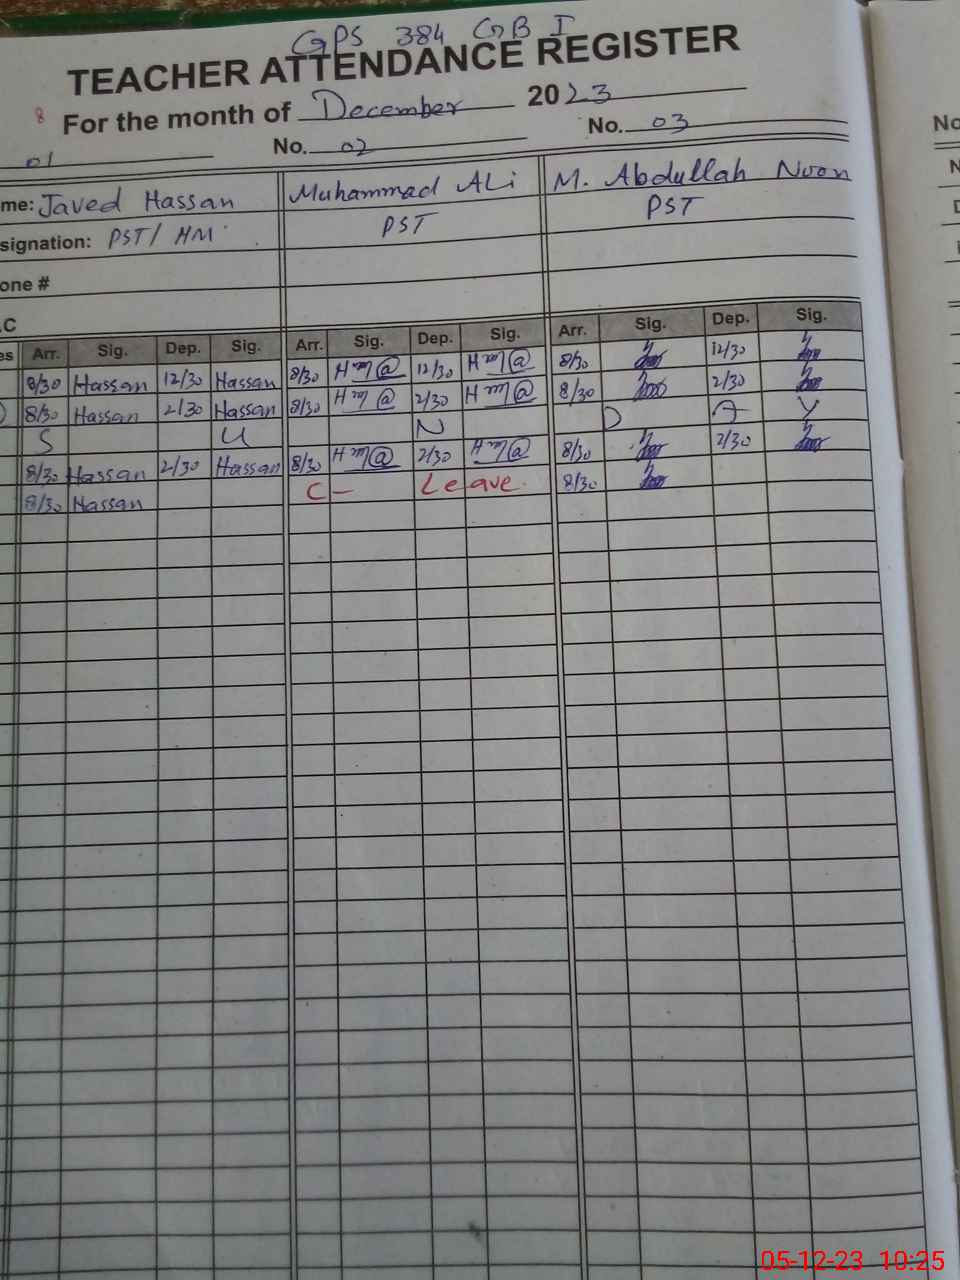 GPS 384 GB I
TEACHER ATTENDANCE REGISTER
8 For the month of December 2023
01 No. 02 No. 03
me: Javed Hassan Muhammad ALi M. Abdullah Noon
signation: PST/HM PST PST
one #
.C
es Arr. Sig. Dep. Sig. Arr. Sig. Dep. Sig. Arr. Sig. Dep. Sig.
8/30 Hassan 12/30 Hassan 8/30 12/30 8/30 12/30
8/30 Hassan 2/30 Hassan 8/30 2/30 8/30 2/30
S U N D A Y
8/30 Hassan 2/30 Hassan 8/30 2/30 8/30 2/30
8/30 Hassan C - Leave. 8/30
No
N
D
05-12-23 10:25